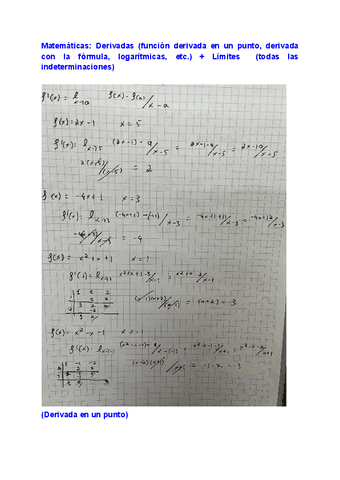 Matemáticas: Derivadas (función derivada en un punto, derivada
con la fórmula, logarítmicas, etc.) + Límites (todas las
indeterminaciones)
f'(x) = l x→a f(x) - f(a) / x - a
f(x) = 2x - 1 x = 5
f'(x) = l x→5 (2x - 1) - 9 / x - 5 = 2x - 1 - 9 / x - 5 = 2x - 10 / x - 5
2(x - 5) / (x - 5) = 2
f(x) = -4x + 1 x = 3
f'(x): l x→3 (-4x + 1) - (-11) / x - 3 = -4x + 1 + 11 / x - 3 = -4x + 12 / x - 3
-4(x - 3) / x - 3 = -4
f(x) = x² + x + 1 x = 1
f'(x) = l x→1 x² + x + 1 - 3 / x - 1 = x² + x - 2 / x - 1
1 1 -2
1 1 2
(x - 1)(x + 2) / (x - 1) = (x + 2) = 3
f(x) = x² - x - 1 x = -1
f'(x) l x→-1 (x² - x - 1) - 1 / x - (-1) = x² - x - 1 - 1 / x + 1 = x² - x - 2 / x + 1
1 -1 -2
(x - 2)(x + 1) / x + 1 = -1 - 2 = -3
(Derivada en un punto)